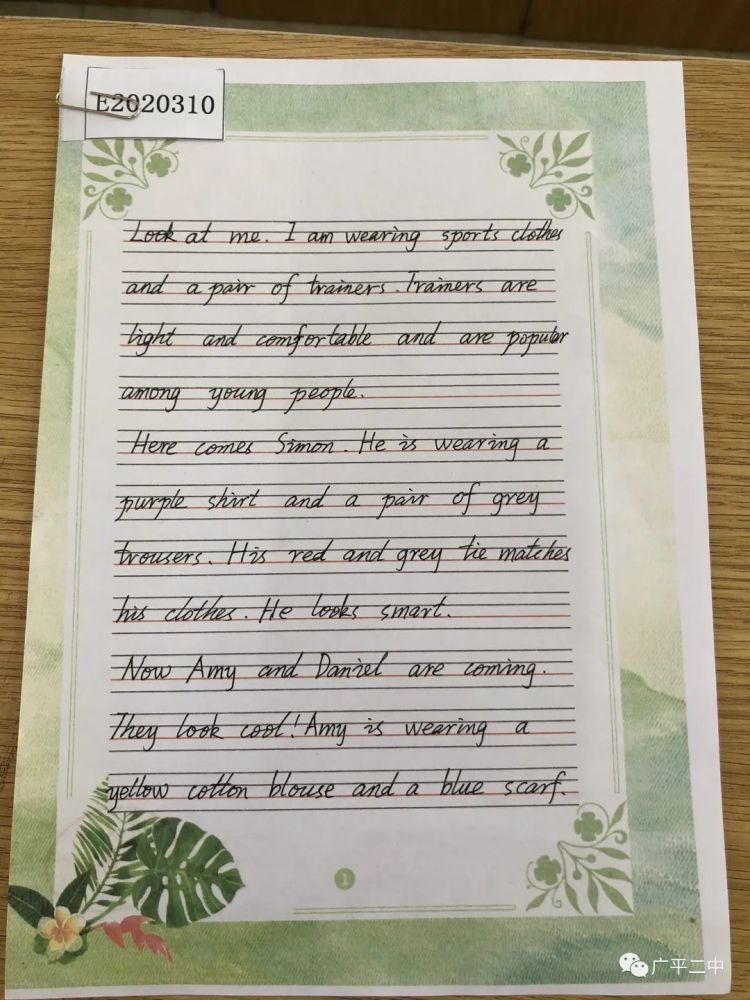 E2020310
Look at me. I am wearing sports clothes
and a pair of trainers. Trainers are
light and comfortable and are popular
among young people.
Here comes Simon. He is wearing a
purple shirt and a pair of grey
trousers. His red and grey tie matches
his clothes. He looks smart.
Now Amy and Daniel are coming.
They look cool! Amy is wearing a
yellow cotton blouse and a blue scarf.
1
广平二中